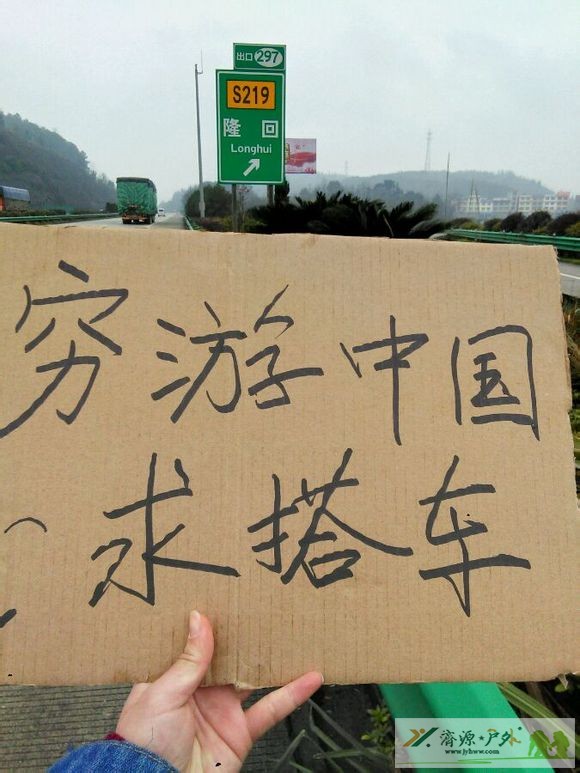 出口 297
S219
隆回
Longhui
穷游中国
求搭车
济源★户外
www.jyhww.com